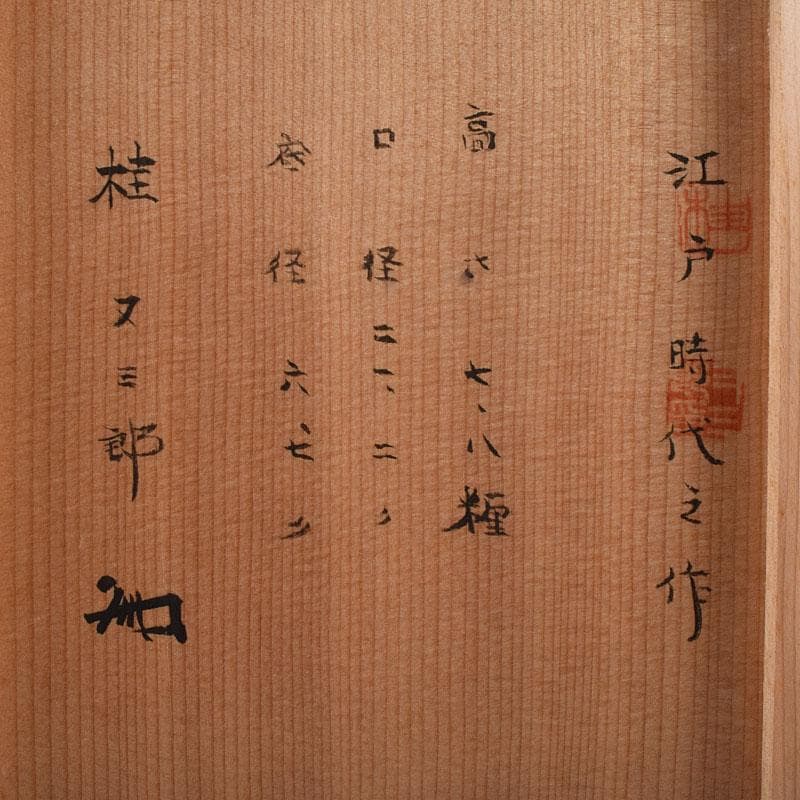 江戸時代之作
高さ七、八糎
口径二一、二〃
底径六、七〃
桂又三郎